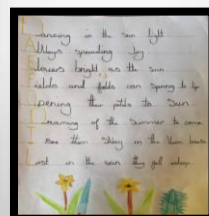 Dancing in the Sun light
Always spreading joy
Flowers bright as the sun
Fields and fields can Spring to
Opening their petals to Sun
Dreaming of the Summer to come
see them in the breeze
Lost in the they fall asleep